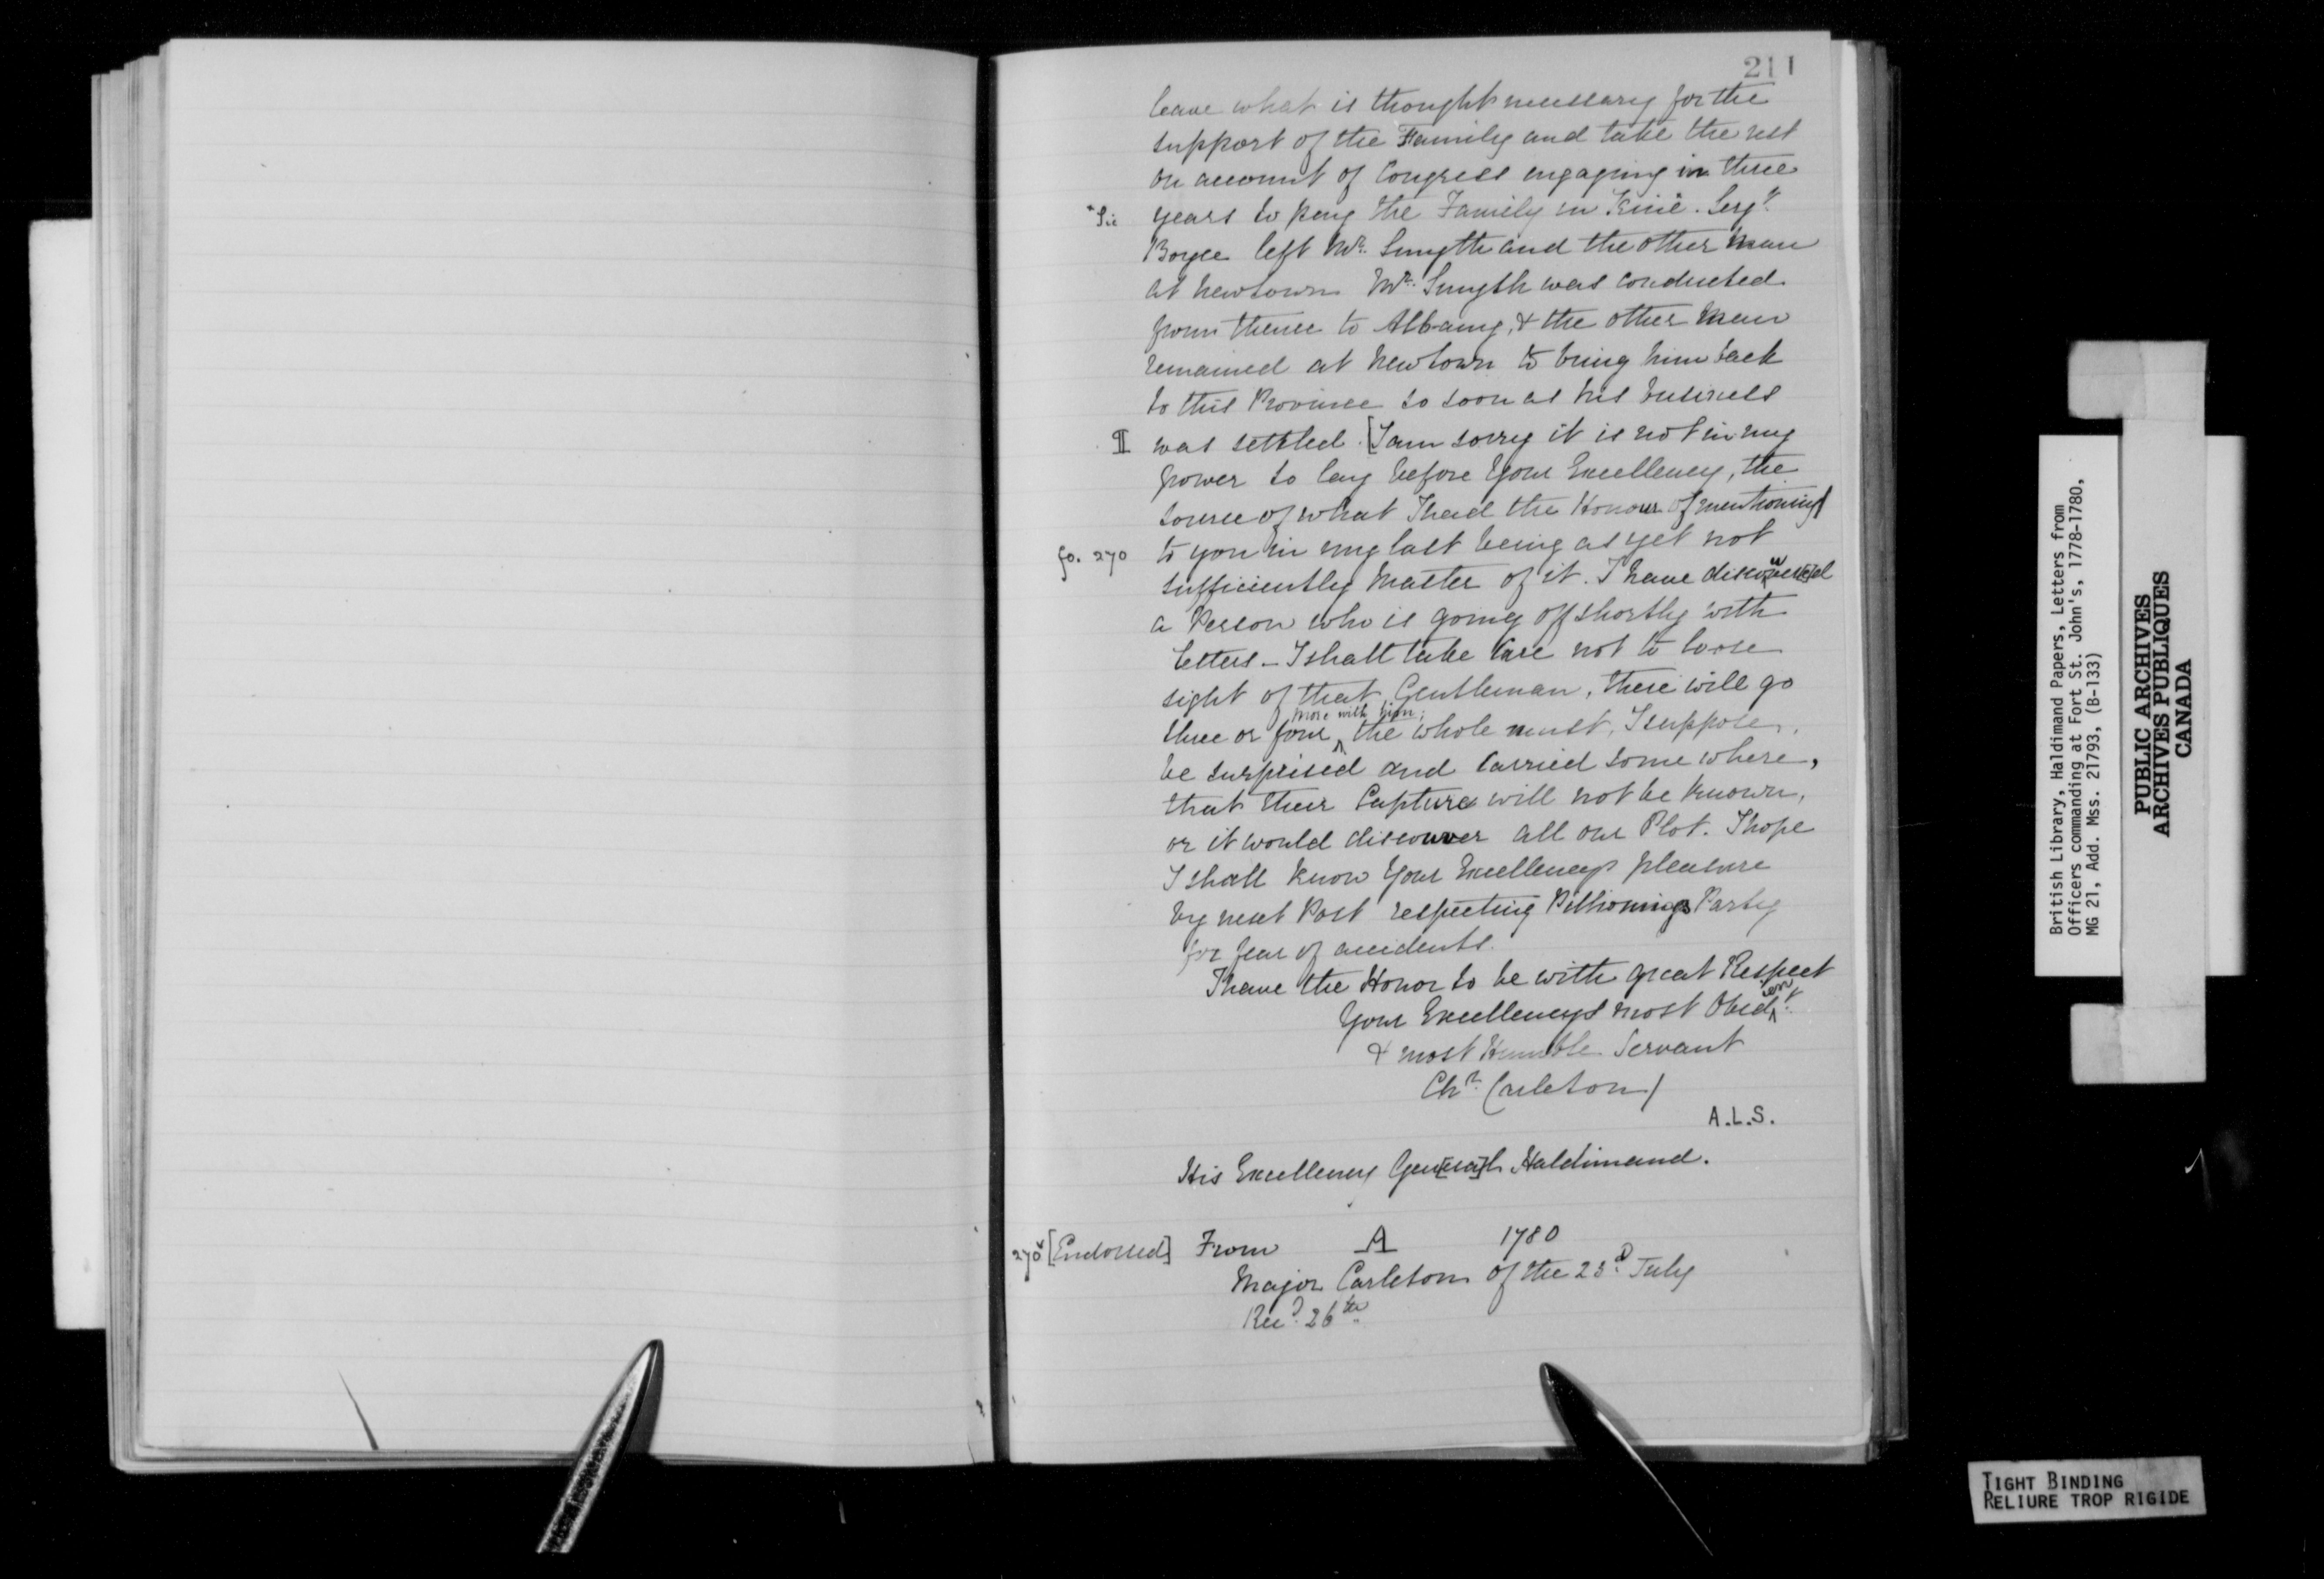 211
leave what is thought necessary for the
support of the Family and take the rest
on account of Congress engaging in three
*Sic years to pay the Family in Kine*. Serj.t
Boyce left Mr. Smyth and the other Man
at Newtown Mr. Smyth was conducted
from thence to Albany, & the other Man
remained at Newtown to bring him back
to this Province so soon as his business
¶ was settled. [I am sorry it is not in my
power to lay before Your Excellency, the
source of what I had the Honour of mentioning
fo. 270 to you in my last being as yet not
sufficiently Master of it. I have discouvered
a Person who is going off shortly with
letters – I shall take Care not to loose
sight of that Gentleman, there will go
three or four more with him; the whole must, I suppose,
be surprised and Carried some where,
that their Capture will not be known,
or it would discouver all our Plot. I hope
I shall know Your Excellencys pleasure
by next Post respecting Party
for fear of accidents.
I have the Honor to be with great Respect
Your Excellencys most Obedient
& most Humble Servant
Chr. Carleton/
A.L.S.
His Excellency Gen[era]l Haldimand.
270v [Endorsed] From A 1780
Major Carleton of the 23d July
Recd. 26th
British Library, Haldimand Papers, Letters from
Officers commanding at Fort St. John's, 1778-1780,
MG 21, Add. Mss. 21793, (B-133)
PUBLIC ARCHIVES
ARCHIVES PUBLIQUES
CANADA
TIGHT BINDING
RELIURE TROP RIGIDE